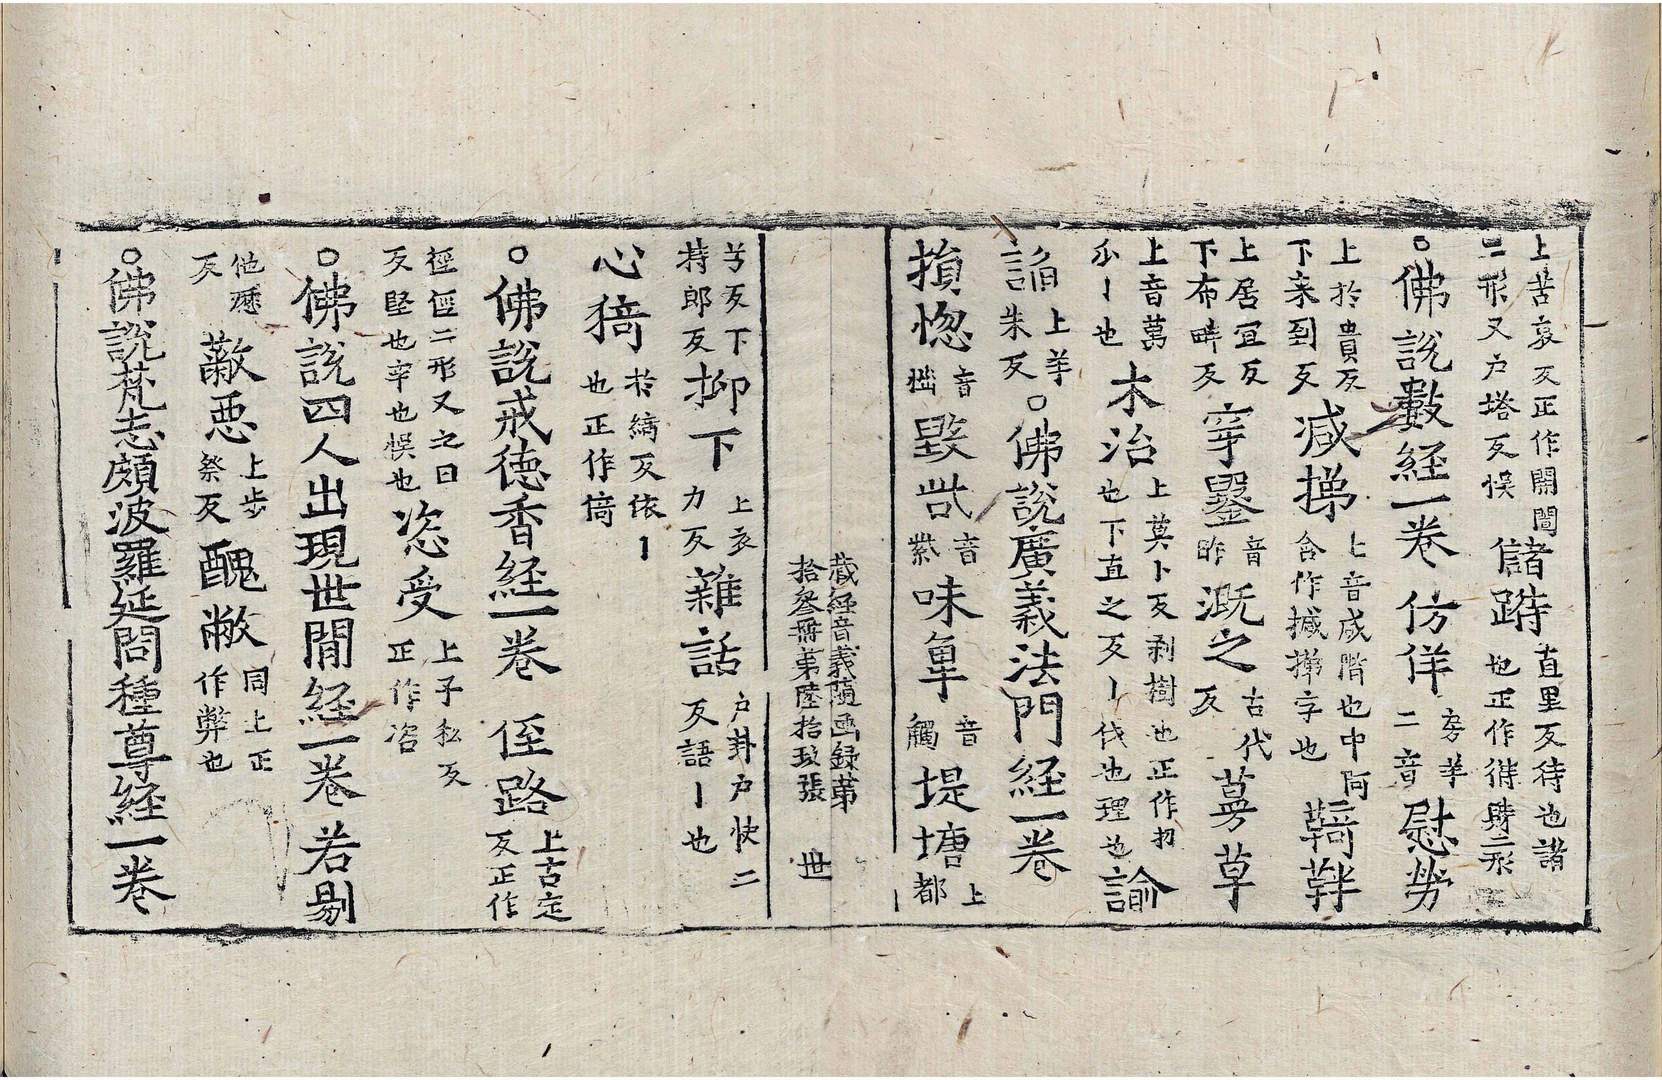 上苦哀反正作開闓二形又户塔反悮儲跱直里反待也諸也正作偫畤二形
○佛說數経一卷仿佯房羊二音慰勞
上扵貴反下来到反減挮上音咸階也中阿含作摵挮字也鞯靽
上居宜反下布畔反穿墾音昨漑之古代反蒡草
上音萬瓜丨也木治上莫卜反剥樹也正作朷也下直之反丨伐也理也諭
諂上羊朱反○佛說廣義法門経一卷
損惚音㧾毀呰音紫味𠦪音觸堤塘上都
藏経音義隨凾録第拾叄冊第陸拾玖張 世
兮反下持郎反抑下上衣力反雜話户卦户快二反語丨也
心猗扵綺反依丨也正作倚
○佛說戒徳香経一卷 侄路上古定反正作
徑俓二形又之日反堅也牢也悮也恣受上子私反正作咨
○佛說四人出現世間経一卷若剔
他歴反蔽惡上步祭反醜敝同上正作弊也
○佛說梵志頗波羅延問種尊経一卷